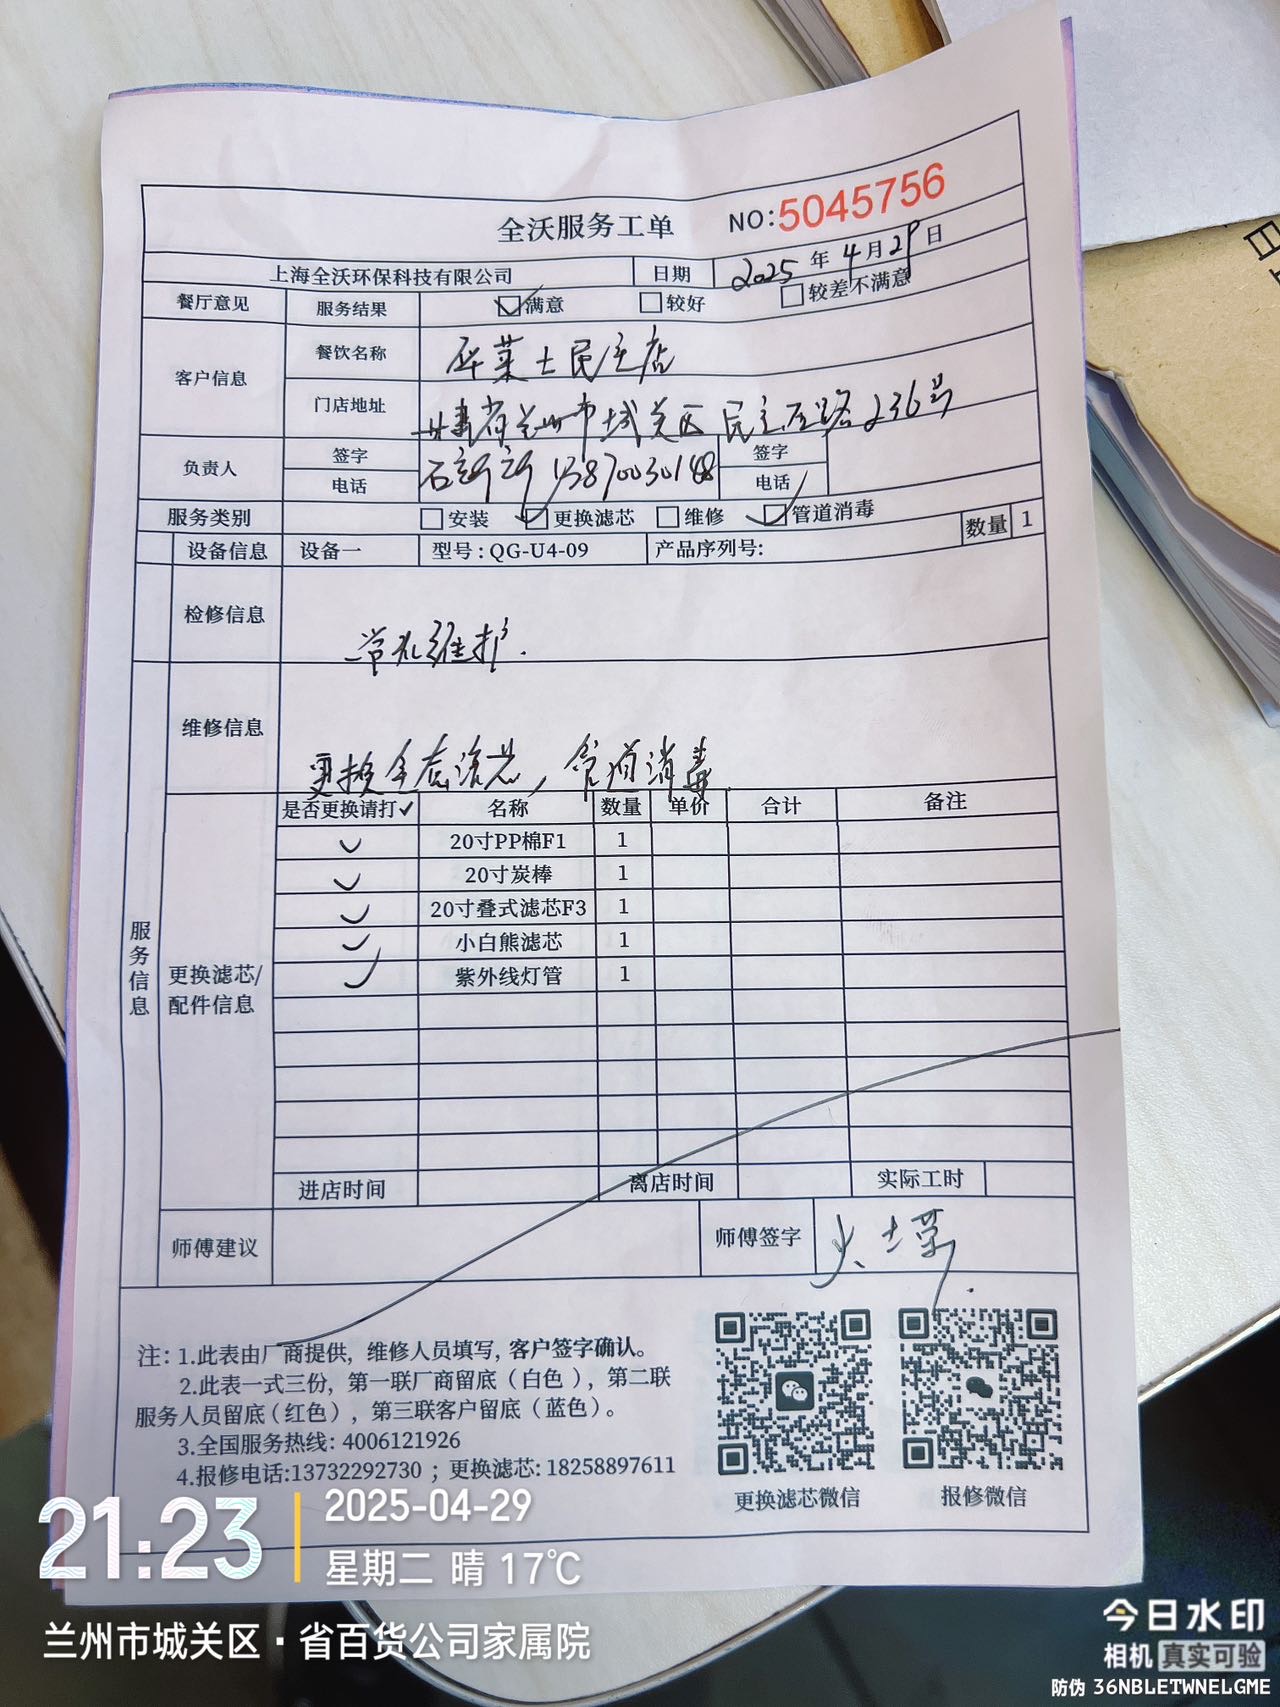 全沃服务工单 NO:5045756
上海全沃环保科技有限公司 日期 2025 年 4 月 29 日
餐厅意见 服务结果 ☑满意 □较好 □较差不满意
客户信息 餐饮名称 华莱士民主店
门店地址 甘肃省兰州市城关区民主西路236号
负责人 签字 签字
电话 13870030148 电话
服务类别 □安装 ☑更换滤芯 □维修 ☑管道消毒
设备信息 设备一 型号:QG-U4-09 产品序列号: 数量 1
检修信息 常规维护.
维修信息 更换全套滤芯,管道消毒
服务信息
更换滤芯/配件信息
是否更换请打✓ 名称 数量 单价 合计 备注
✓ 20寸PP棉F1 1
✓ 20寸炭棒 1
✓ 20寸叠式滤芯F3 1
✓ 小白熊滤芯 1
✓ 紫外线灯管 1
进店时间 离店时间 实际工时
师傅建议 师傅签字
注: 1.此表由厂商提供, 维修人员填写, 客户签字确认。
2.此表一式三份, 第一联厂商留底(白色), 第二联
服务人员留底(红色), 第三联客户留底(蓝色)。
3.全国服务热线: 4006121926
4.报修电话:13732292730 ; 更换滤芯: 18258897611
更换滤芯微信 报修微信
21:23 2025-04-29
星期二 晴 17℃
兰州市城关区·省百货公司家属院
今日水印
相机 真实可验
防伪 36NBLETWNELGME